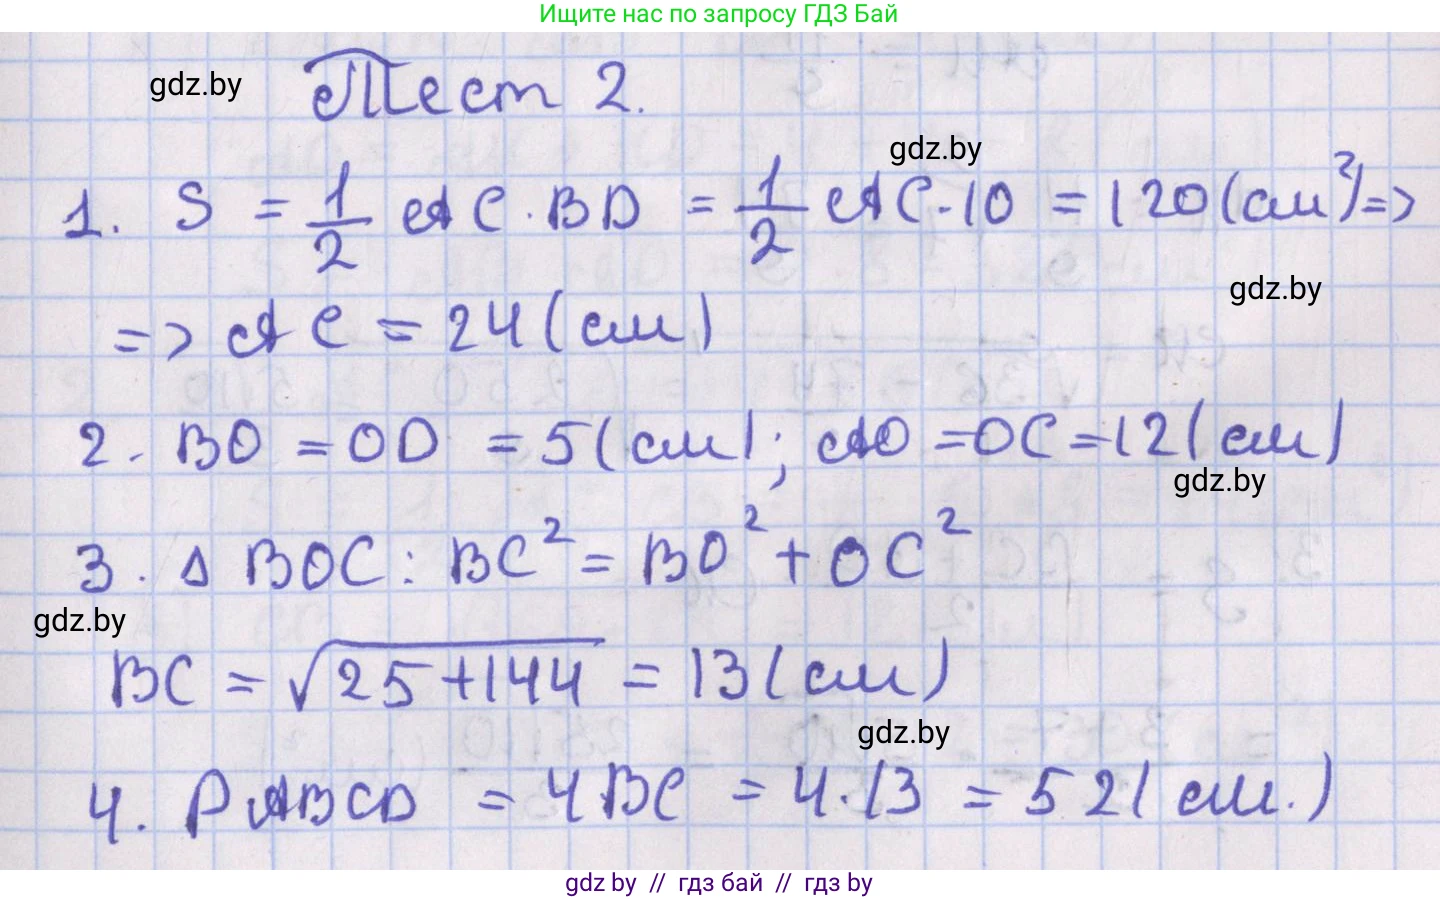 Ищите нас по запросу ГДЗ Бай
gdz.by
Тест 2.
gdz.by
1. S = 1/2 AC · BD = 1/2 AC · 10 = 120 (см²) =>
gdz.by
=> AC = 24 (см)
2. BO = OD = 5 (см); AO = OC = 12 (см)
gdz.by
3. Δ BOC: BC² = BO² + OC²
gdz.by
BC = √25+144 = 13 (см)
gdz.by
4. P ABCD = 4BC = 4·13 = 52 (см.)
gdz by // гдз бай // гдз by